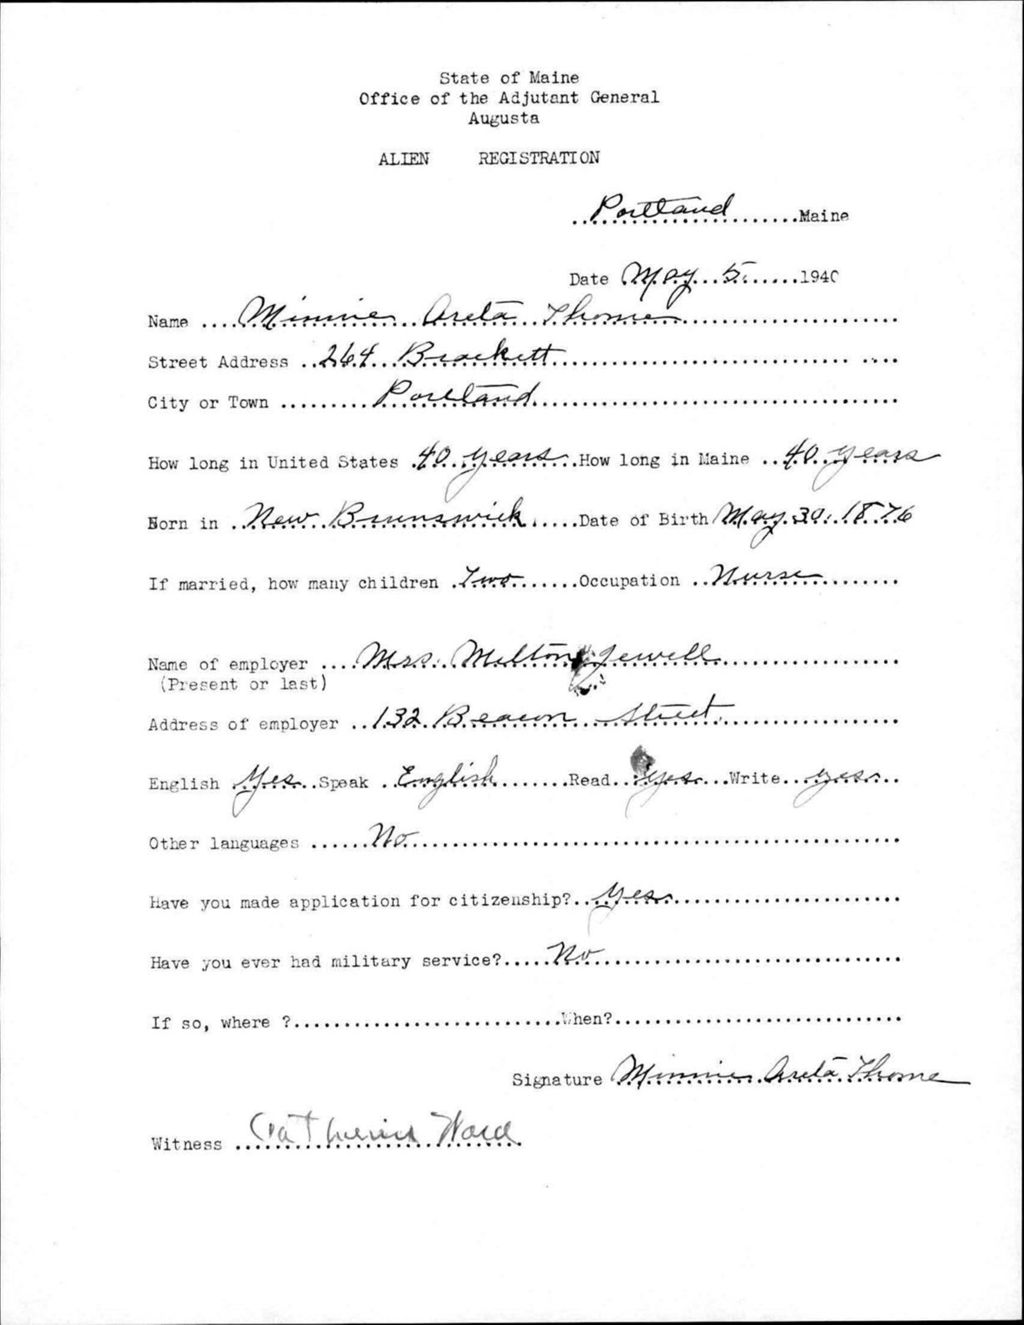 State of Maine
Office of the Adjutant General
Augusta
ALIEN REGISTRATION
Portland Maine
Date May 5 1940
Name Minnie Areta Thorne
Street Address 264 Brackett
City or Town Portland
How long in United States 40 years How long in Maine 40 years
Born in New Brunswick Date of Birth May 30, 1876
If married, how many children Two Occupation Nurse
Name of employer Mrs. Milton Jewell
(Present or last)
Address of employer 132 Beacon Street
English Yes Speak English Read yes Write yes
Other languages No
Have you made application for citizenship? Yes
Have you ever had military service? No
If so, where ? When?
Signature Minnie Areta Thorne
Witness Catherine Ward